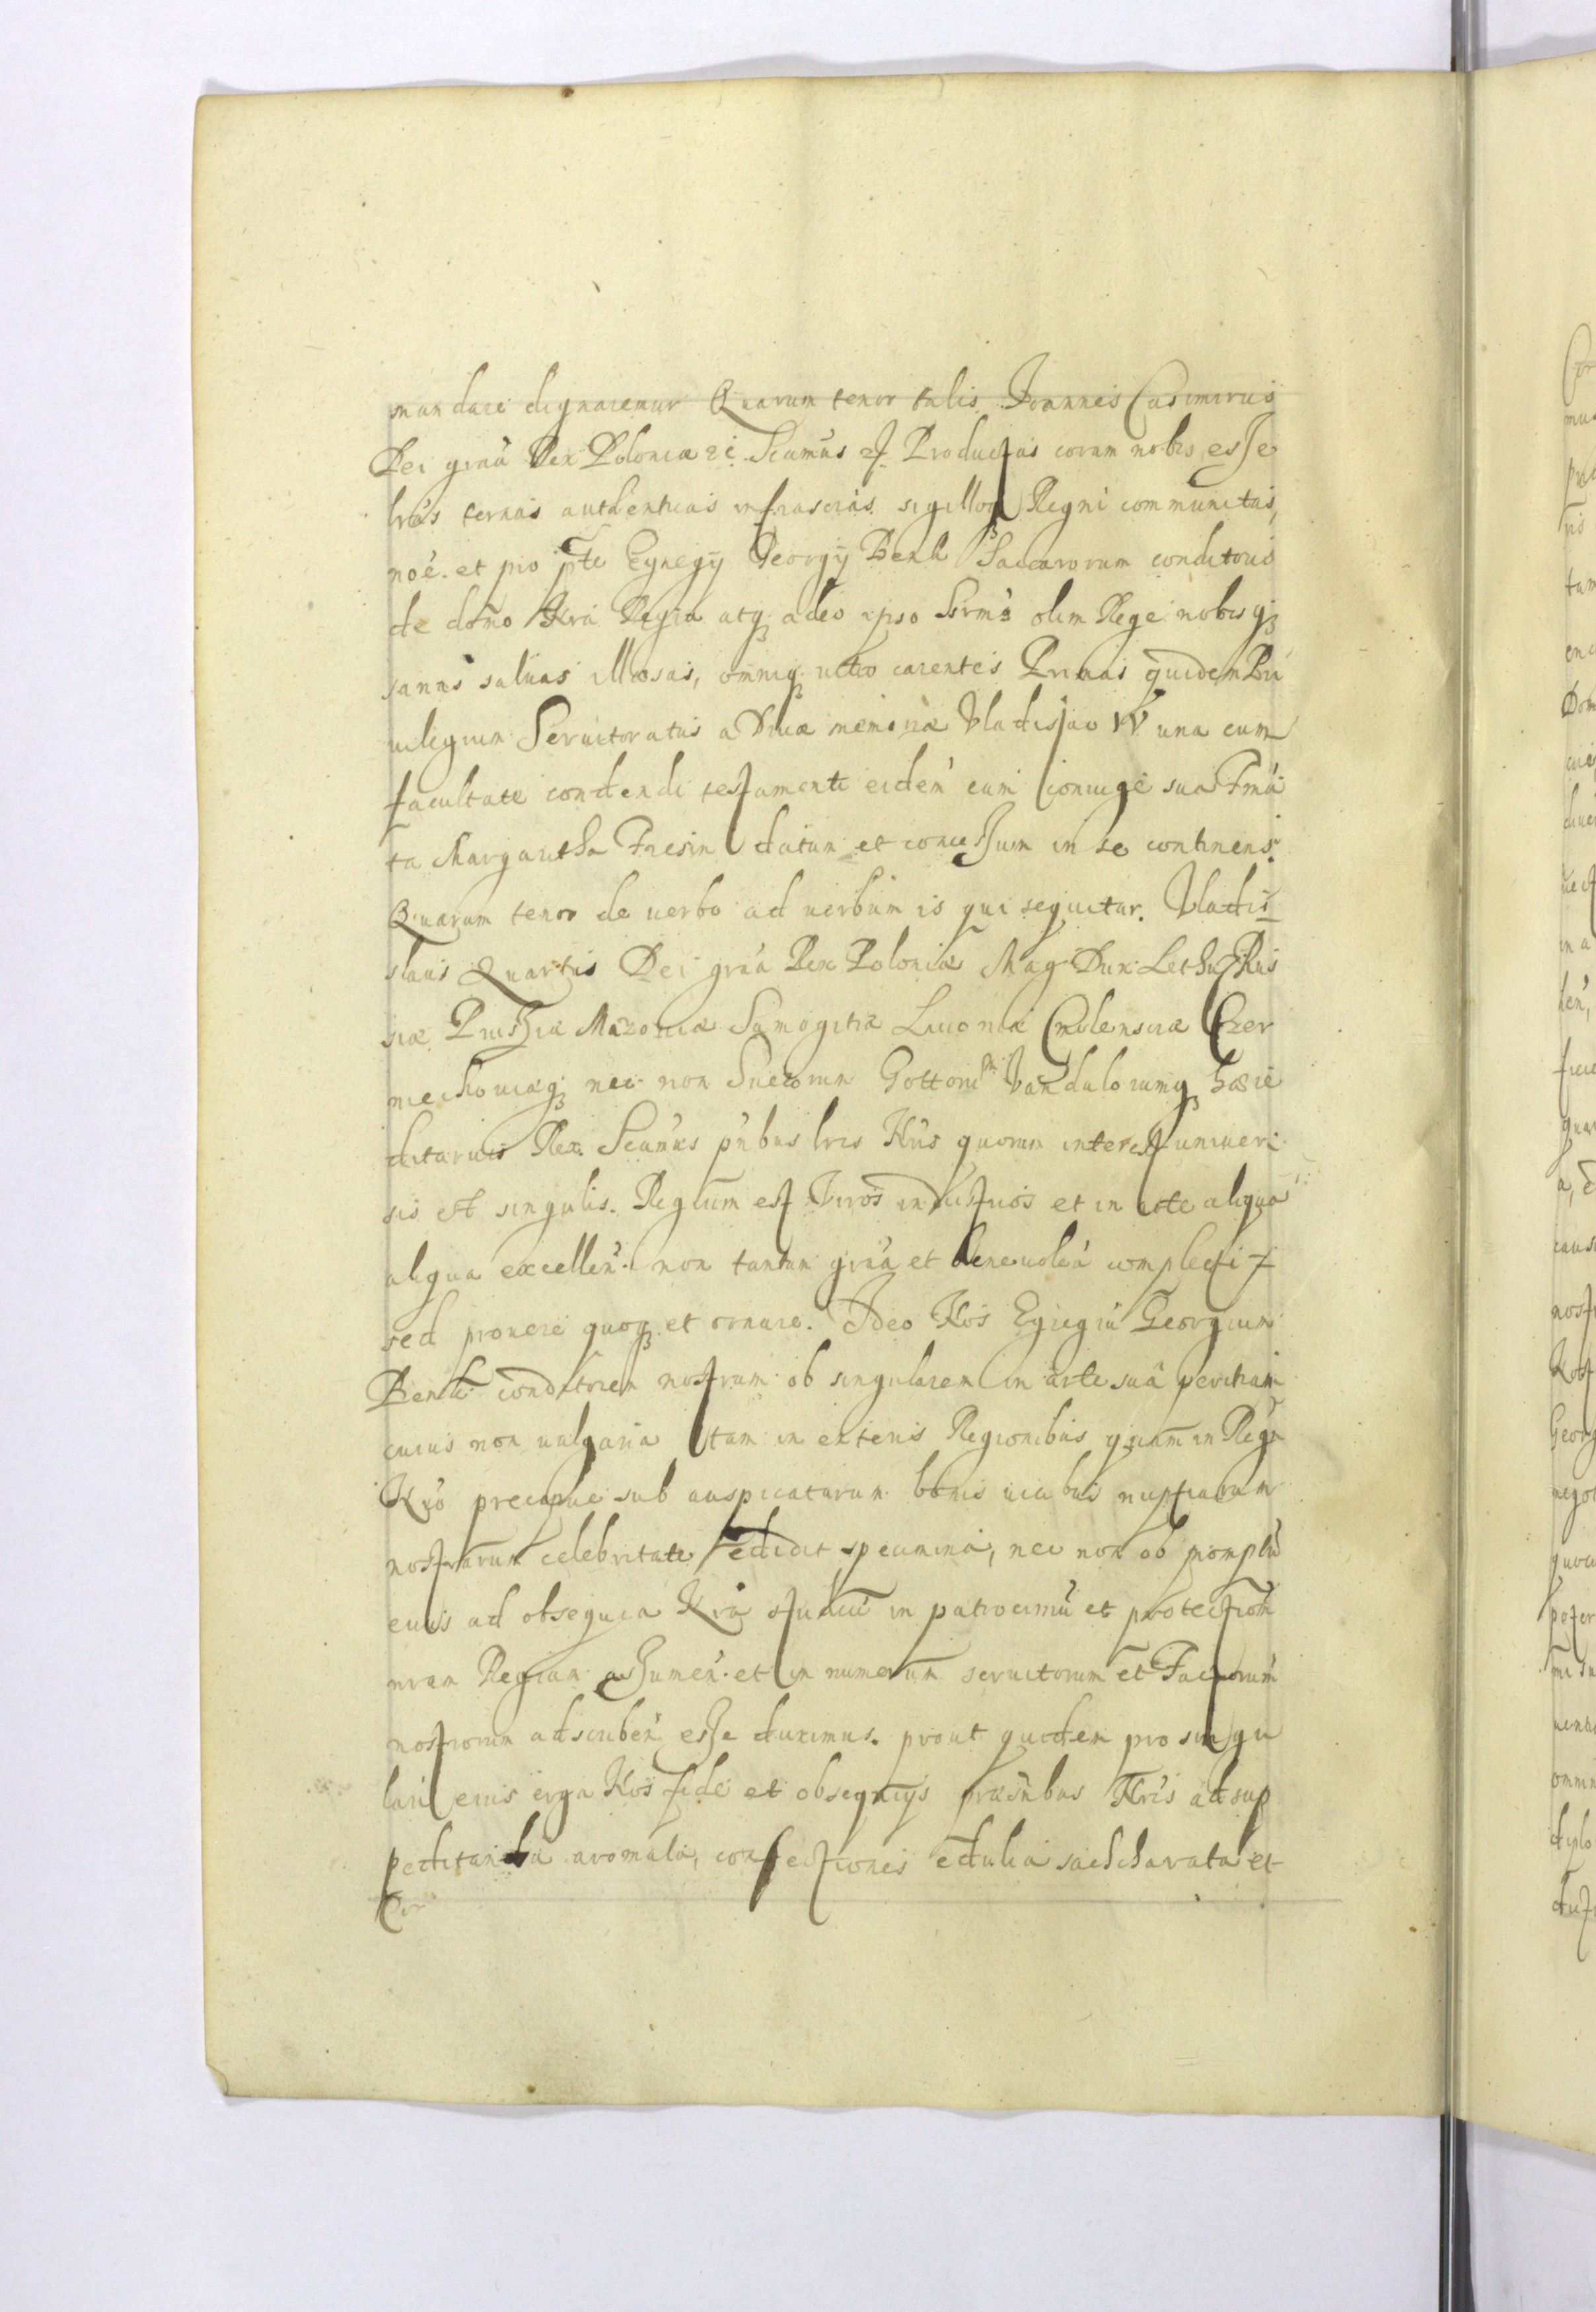 mandare dignaremur Quarum tenor talis Joannes Casimirus
Dei grãa Rex Poloniæ &c. Scimus &. Productas coram nobis esse
lras ternas authenticas infrascras sigillor Regni communitas,
noe. et pro pte Egregij Georgij Benk Saccarorum conditoris
de domo Nra Regia atq adeo ipso Sermo olim Rege nobisq
sanas saluas illæsas, omniq uitio carentes Primas quidem Pri
uilegium Seruitoratus a Diuæ memoriæ Vladislao IV una cum
facultate condendi testamenti eidem cum Coniuge sua Fma
ta Margaretha Fresin datum et concessum in se continens.
Quarum tenor de uerbo ad uerbum is qui sequitur. Vladis
slaus Quartus Dei grãa Rex Poloniæ Mag Dux Lithu Rus
siæ Prussiæ Mazouiæ Samogitiæ Liuoniæ Smolensciæ Czer
niechouiæq nec non Suecorum Gottorum Vandulorumq hære
ditarius Rex. Scimus pñbus lris Nris quorum interest uniuer
sis et singulis. Regium est Viros industrios et in arte aliqua
aliqua excelleñ. non tantum grãa et beneuoleã complecti
sed prouere quoq et ornare. Ideo Nos Egregiũ Georgium
Benk conditorem nostrum ob singularem in arte suâ peritiam
cuius non uulgaria tam in exteris Regionibus quam in Regn
Nro precipue sub auspicatarum bonis auibus nuptiarum
nostrarum celebritate edidit specimina, nec non ob promptũ
eius ad obsequia Nra studiũ in patrociniũ et protectionẽ
nram Regiam assumeñ. et in numerum seruitorum et Factorum
nostrorum adscribeñ esse duximus. prout quidem pro singu
lari eius erga Nos fide et obsequijs præsñbus Nris ad sup
peditanda aromata, confectiones edulia sachcharata et